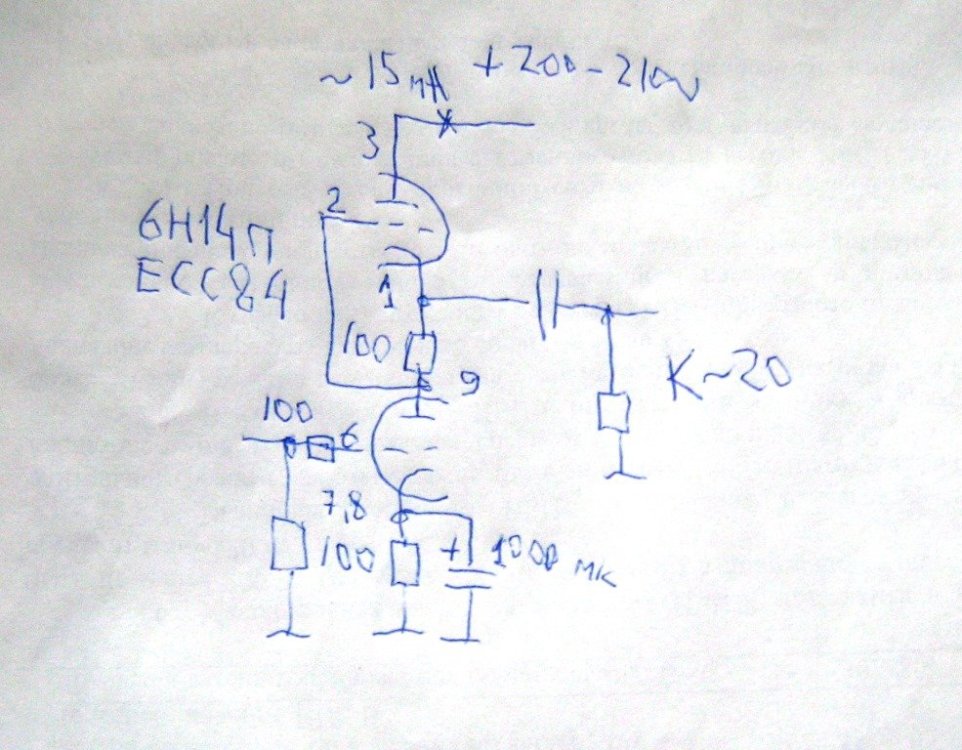 ~15мА +200-210v
3
2
6Н14П
ECC84
1
100
9
K~20
100
6
7,8
100
+
1000 мк